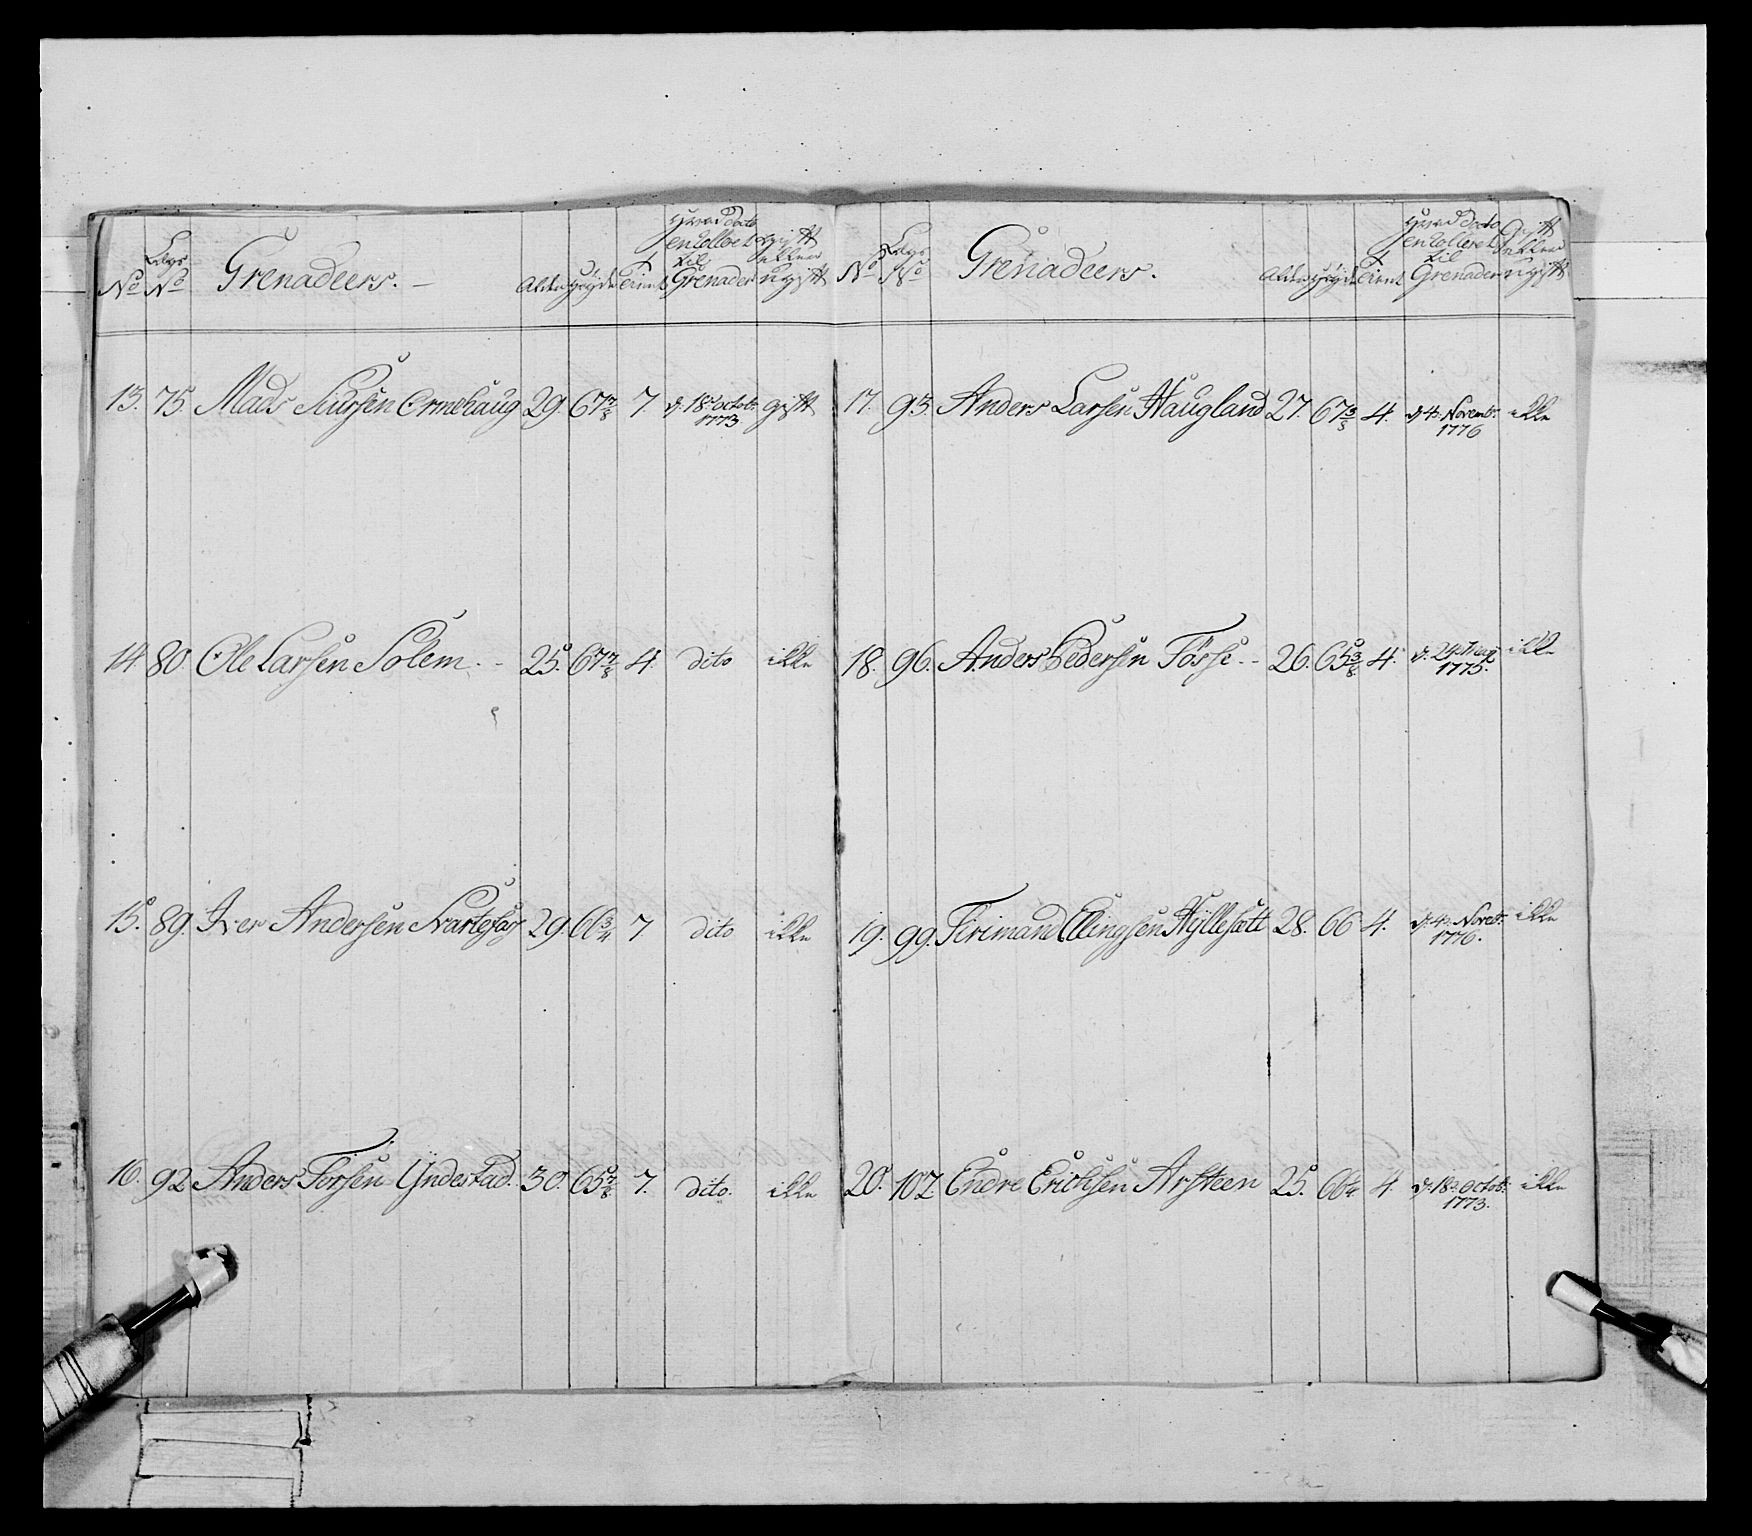 No Lægs No Grenadeers. Alder Höyde Tient Hvad dato enrolleret til Grenader gift eller ugift
13. 75. Mads Siursen Ermehaug 29. 67 7/8 7. d. 18de octobr. 1773 gift
14 80 Ole Larsen Solem. 25. 67 7/8 4. dito ikke
15. 89. Iver Andersen Svartefos 29. 66 3/4 7. dito ikke
16. 92 Anders Torsen Yndestad. 30. 65 7/8 7. dito. ikke
No Lægs No Grenadeers. Alder Höyde Tient Hvad dato enrolleret til Grenader Gift eller ugift
17. 93. Anders Larsen Haugland 27. 67 3/8 4. d. 4de Novembr. 1776 ikke
18. 96. Anders Pedersen Fosse. 26. 65 3/8 4. d. 24de 1775. ikke
19. 99. Firimand Ellingsen Hyllesætt 28. 66 4. d. 4de Novbr. 1776. ikke
20. 102 Endre Erichsen Arsteen 25. 66 1/4 4. d. 18de Octobr. 1773. ikke